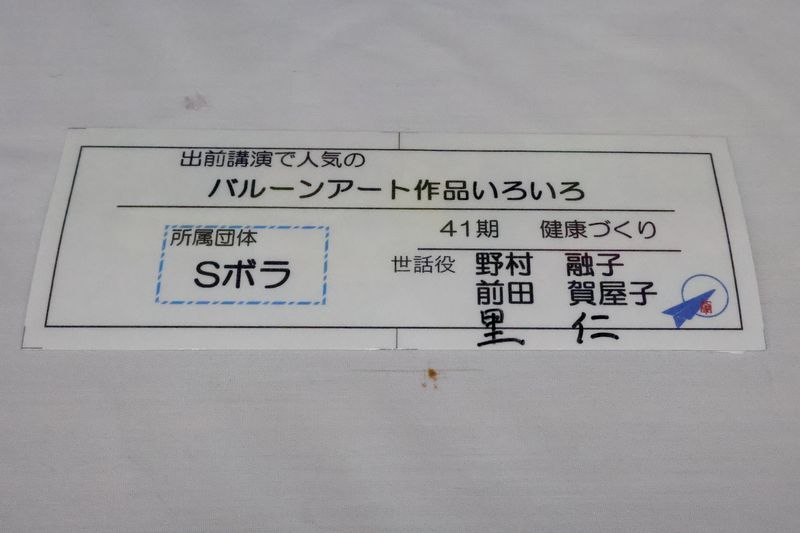 出前講演で人気の
バルーンアート作品いろいろ
所属団体
Sボラ
41期 健康づくり
世話役 野村 融子
前田 賀屋子
里 仁